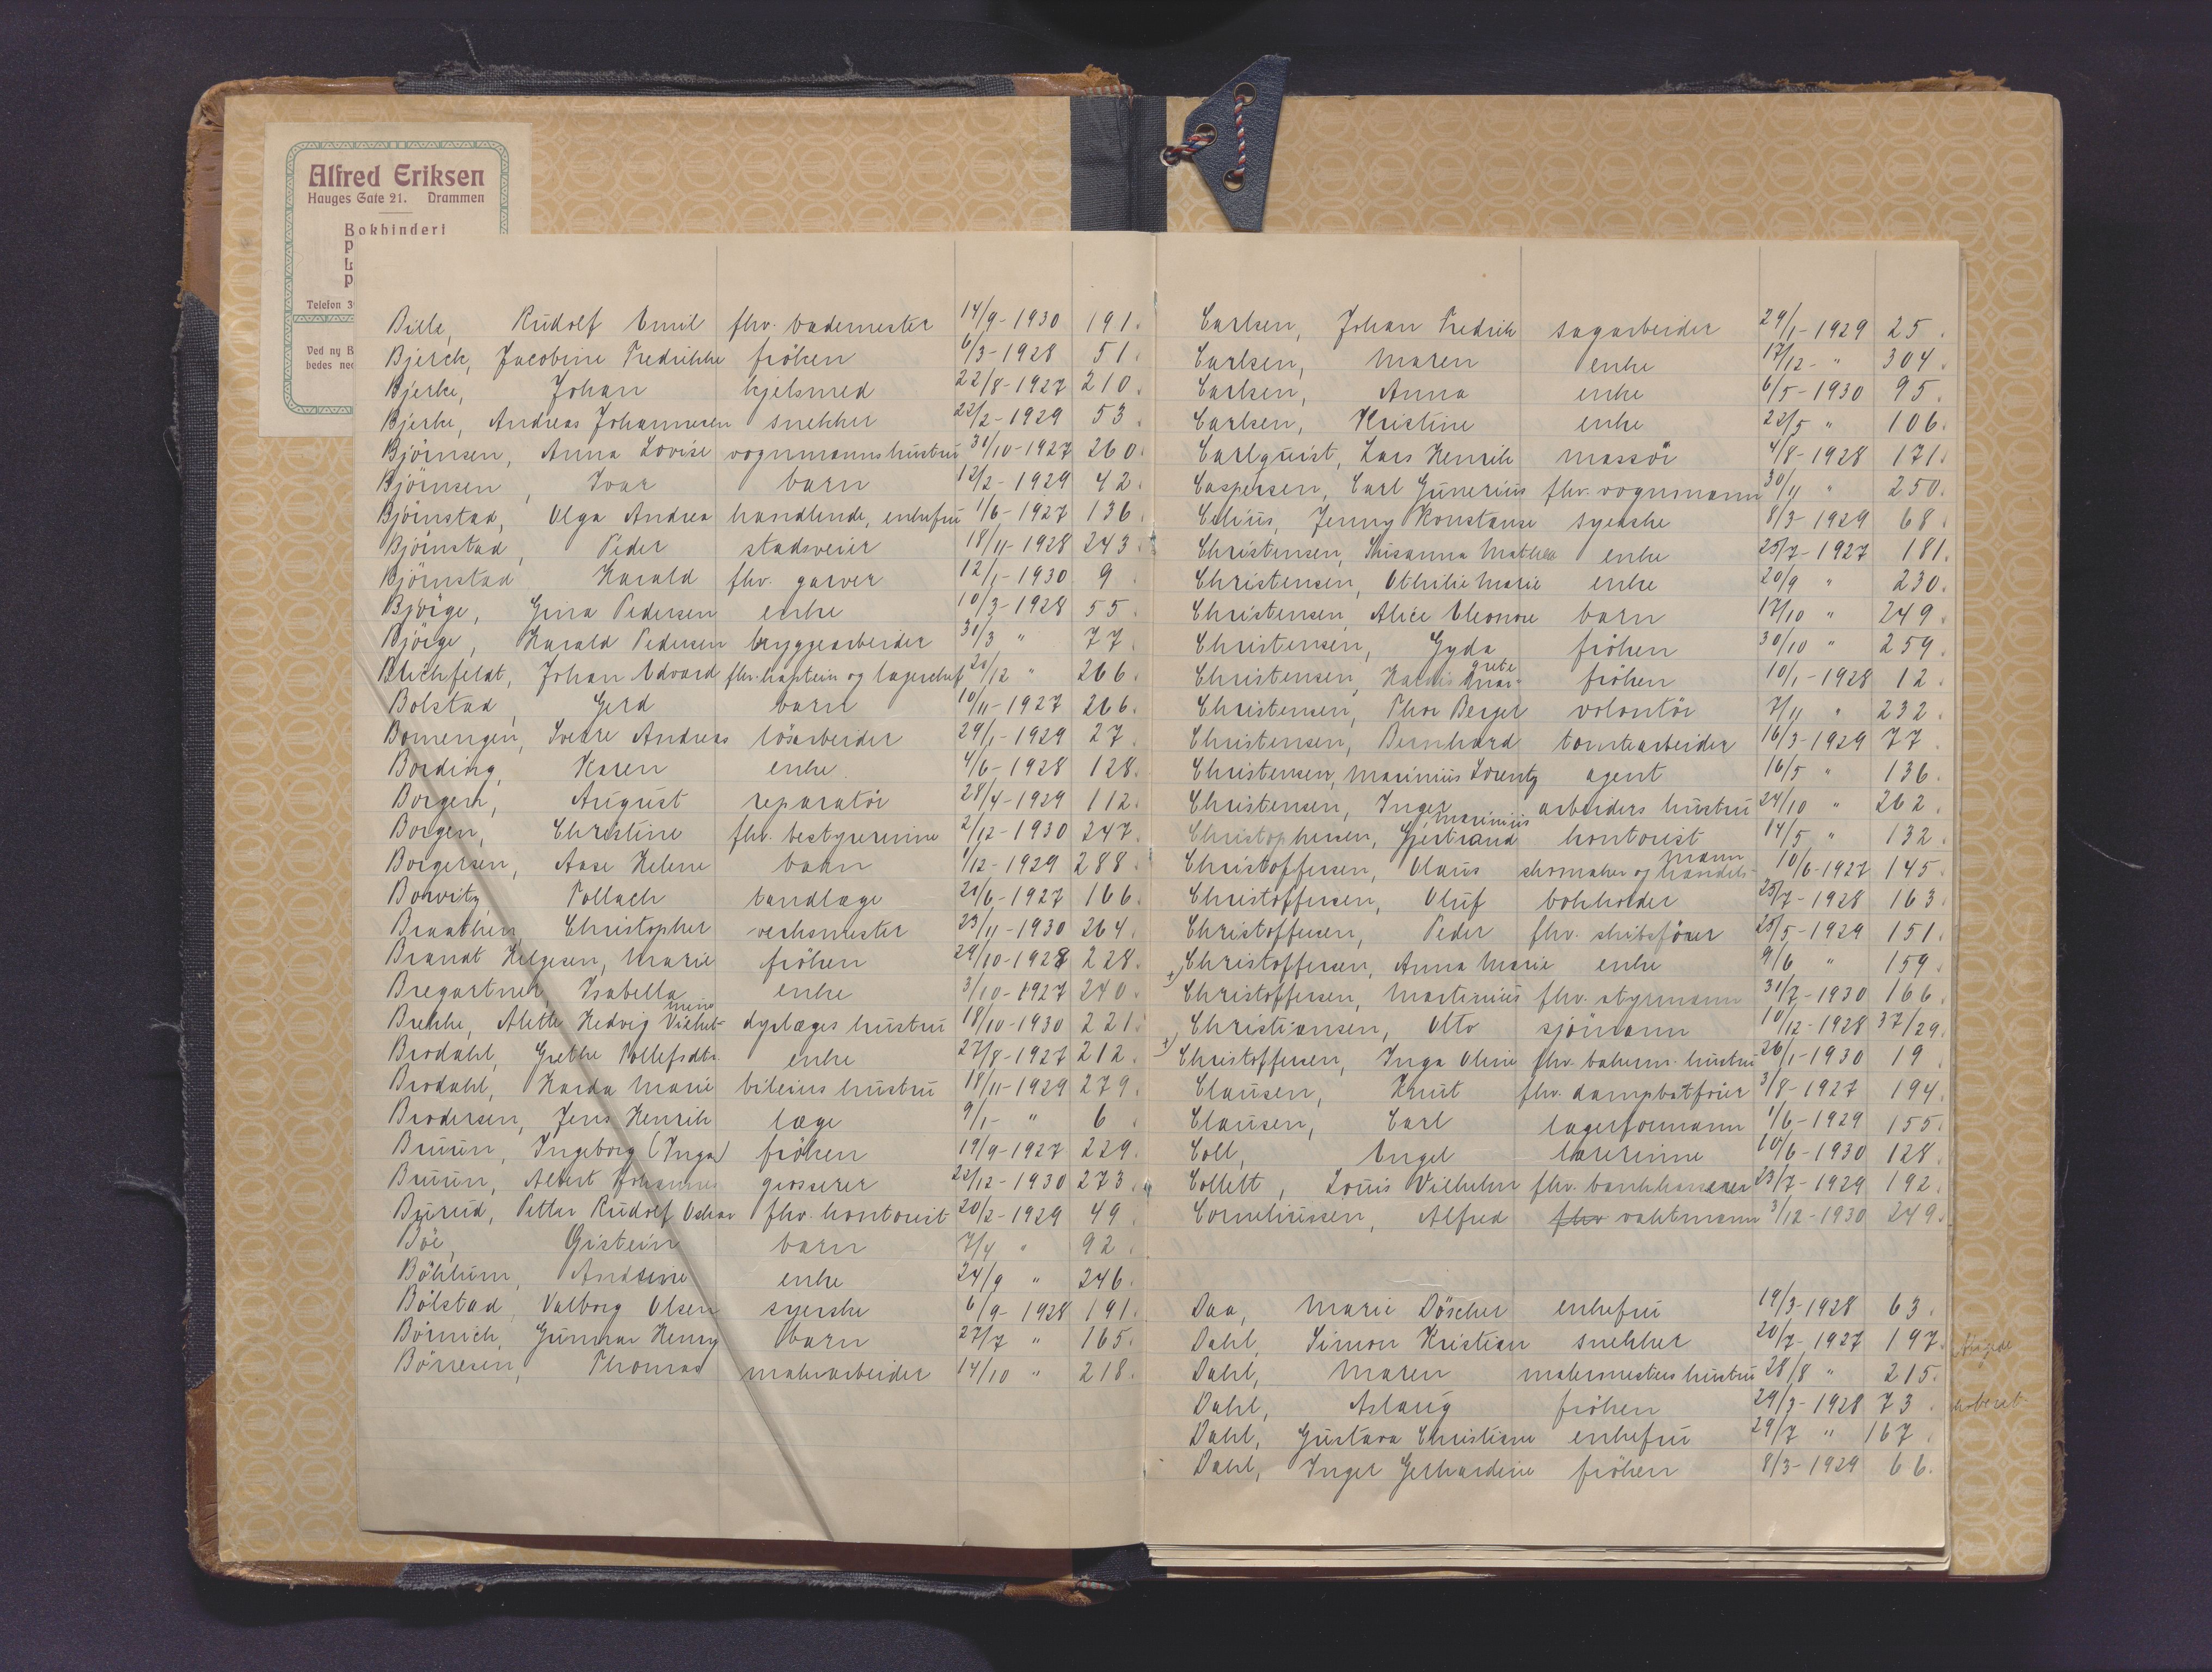 Alfred Eriksen
Hauges Gate 21. Drammen
Bokbinderi
P
L
P
Telefon 3
Ved ny B
bedes ne
Bille, Rudolf Emil fhv. bademester 14/9-1930 191.
Bjerck, Jacobine Fredrikke fröken 6/3-1928 51.
Bjerke, Johan kjelsmed 22/8-1927 210.
Bjerke, Andreas Johannesen snekker 22/2-1929 53.
Björnsen, Anna Lovise vognmannshustru 31/10-1927 260.
Björnsen, Ivar barn 12/2-1929 42.
Björnstad, Olga Andrea handlende, enkefru 1/6-1927 136.
Björnstad, Peder stadsveier 18/11-1928 243.
Björnstad Harald fhv. garver 12/1-1930 9
Bjöige, Gina Pedersen enke 10/3-1928 55.
Björge, Harald Pedersen bryggearbeider 31/3 " 77.
Blichfeldt, Johan Edvard fhv. kaptein og lagerchef 20/12 " 266.
Bolstad, Gerd barn 10/11-1927 266.
Bomengen, Sverre Andreas lösarbeider 29/1-1929 27.
Bording, Karen enke 4/6-1928 128.
Borgen, August reparatör 28/4-1929 112.
Borgen, Christine fhv. bestyrerinne 2/12-1930 247.
Borgersen, Aase Helene barn 1/12-1929 288.
Borvitz Pollack tandlæge 21/6-1927 166.
Braathen, Christopher verksmester 23/11-1930 264.
Brandt Helgesen, Marie fröken 24/10-1928 228.
Bregartner, Isabella enke 3/10-1927 240.
Brekke, Alette Hedvig Vilhelmine dyrlæges hustru 18/10-1930 221.
Brodahl, Grethe Tollefsdtr. enke 27/8-1927 212.
Brodahl, Harda Marie bileiers hustru 18/11-1929 279.
Brodersen, Jens Henrik læge 9/1- " 6.
Bruun, Ingeborg (Inga) fröken 19/9-1927 229.
Bruun, Albert Johannes grosserer 22/12-1930 273.
Burud, Petter Rudolf Oskar fhv. kontorist 20/2-1929 49.
Böe, Öistein barn 7/4 " 92.
Böhlum, Andrine enke 24/9 " 246.
Bölstad, Valborg Olsen syerske 6/9-1928 191.
Börnich, Gunnar Henry barn 27/7 " 165.
Börresen, Thomas malerarbeider 14/10 " 218.
Carlsen, Johan Fredrik sagarbeider 24/1-1929 25.
Carlsen, Maren enke 17/12- " 304.
Carlsen, Anna enke 6/5-1930 95.
Carlsen, Kristine enke 22/5 " 106.
Carlquist, Lars Henrik massör 4/8-1928 171.
Caspersen, Carl Gunerius fhv. vognmann 30/11 " 250.
Celius, Jenny Konstanse syerske 8/3-1929 68.
Christensen, Susanna Mathilde enke 25/7-1927 181.
Christensen, Othilie Marie enke 20/9 " 230.
Christensen, Alice Eleonore barn 17/10 " 249.
Christensen, Gyda fröken 30/10 " 259.
Christensen, Hardis Margrete fröken 10/1-1928 12.
Christensen, Thor Berger volontör 7/11 " 232.
Christensen, Bernhard tomtearbeider 16/3-1929 77.
Christensen, Marinius Lorentz agent 16/5 " 136.
Christensen, Inger arbeiders hustru 24/10 " 262.
Christophersen, Gjertrand Marinius kontorist 14/5 " 132.
Christoffersen, Olaus skomaker og handelsmann 10/6-1927 145.
Christoffersen, Oluf bokholder 25/7-1928 163.
Christoffersen, Peder fhv. skibsförer 25/5-1929 151.
Christoffersen, Anna Marie enke 9/6 " 159.
x) Christoffersen, Martinius fhv. styrmann 31/7-1930 166.
Christiansen, Otto sjömann 10/12-1928 37/29.
x) Christoffersen, Inga Oline fhv. bakerm. hustru 26/1-1930 19.
Clausen, Knut fhv. dampbåtförer 3/8-1927 194.
Clausen, Carl lagerformann 1/6-1929 155.
Coll, Engel lærerinne 10/6-1930 128.
Collett, Louis Vilhelm fhv. bankkasserer 23/7-1929 192.
Corneliussen, Alfred fhv vaktmann 3/12-1930 249.
Daa, Marie Döscher enkefru 19/3-1928 63.
Dahl, Simon Kristian snekker 20/7-1927 197.
Dahl, Maren malermesters hustru 28/8 " 215.
Dahl, Aslaug fröken 29/3-1928 73.
Dahl, Gustava Christiane enkefru 29/7 " 167.
Dahl, Inger Gerhardine fröken 8/3-1929 66.